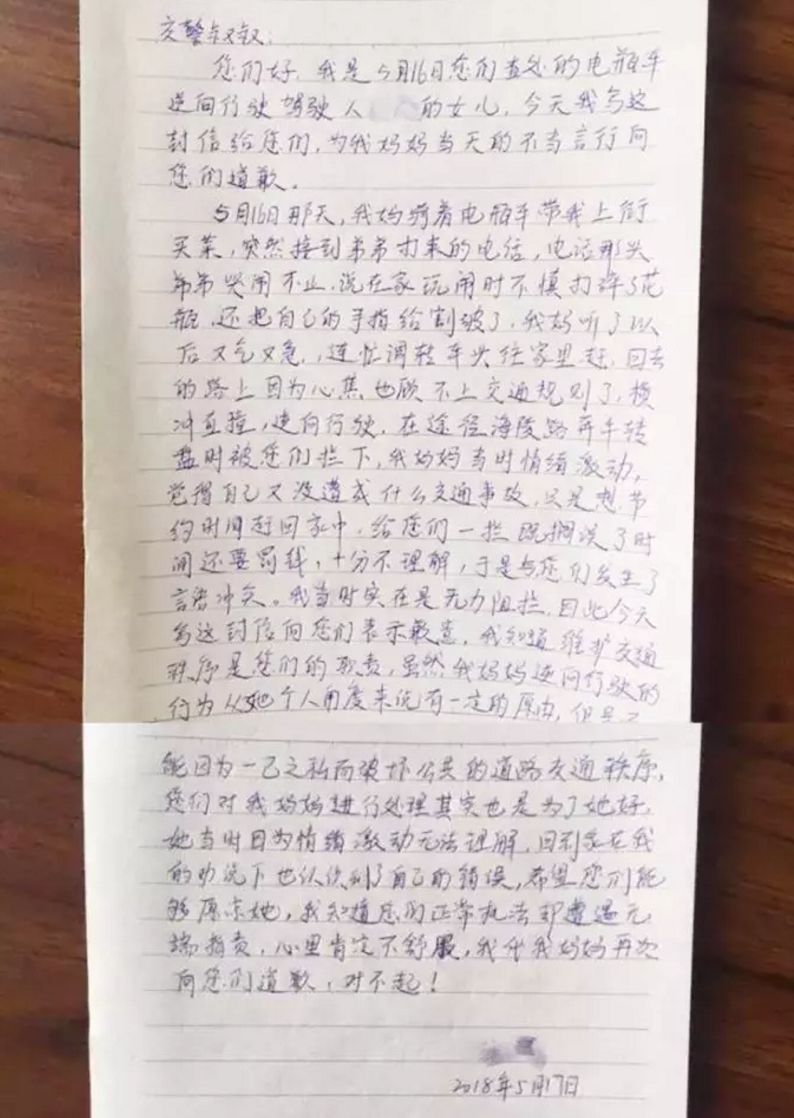 交警叔叔:
您们好,我是5月16日您们查处的电瓶车
逆向行驶驾驶人 的女儿,今天我写这
封信给您们,为我妈妈当天的不当言行向
您们道歉。
5月16日那天,我妈骑着电瓶车带我上街
买菜,突然接到弟弟打来的电话,电话那头
弟弟哭闹不止,说在家玩闹时不慎打碎了花
瓶,还把自己的手指给割破了,我妈听了以
后又气又急,连忙调转车头往家里赶,回去
的路上因为心焦也顾不上交通规则了,横
冲直撞,逆向行驶,在途径海陵路奔牛转
盘时被您们拦下,我妈妈当时情绪激动,
觉得自己又没造成什么交通事故,只是想节
约时间赶回家中,给您们一拦既搁误了时
间还要罚钱,十分不理解,于是与您们发生了
言语冲突。我当时实在是无力阻拦,因此今天
写这封信向您们表示歉意,我知道维护交通
秩序是您们的职责,虽然我妈妈逆向行驶的
行为从她个人角度来说有一定的原由,但是
能因为一己之私而破坏公共的道路交通秩序,
您们对我妈妈进行处理其实也是为了她好,
她当时因为情绪激动无法理解,回到家在我
的劝说下也认识到了自己的错误,希望您们能
够原谅她,我知道您们正常执法却遭遇无
端指责,心里肯定不舒服,我代我妈妈再次
向您们道歉,对不起!
2018年5月17日